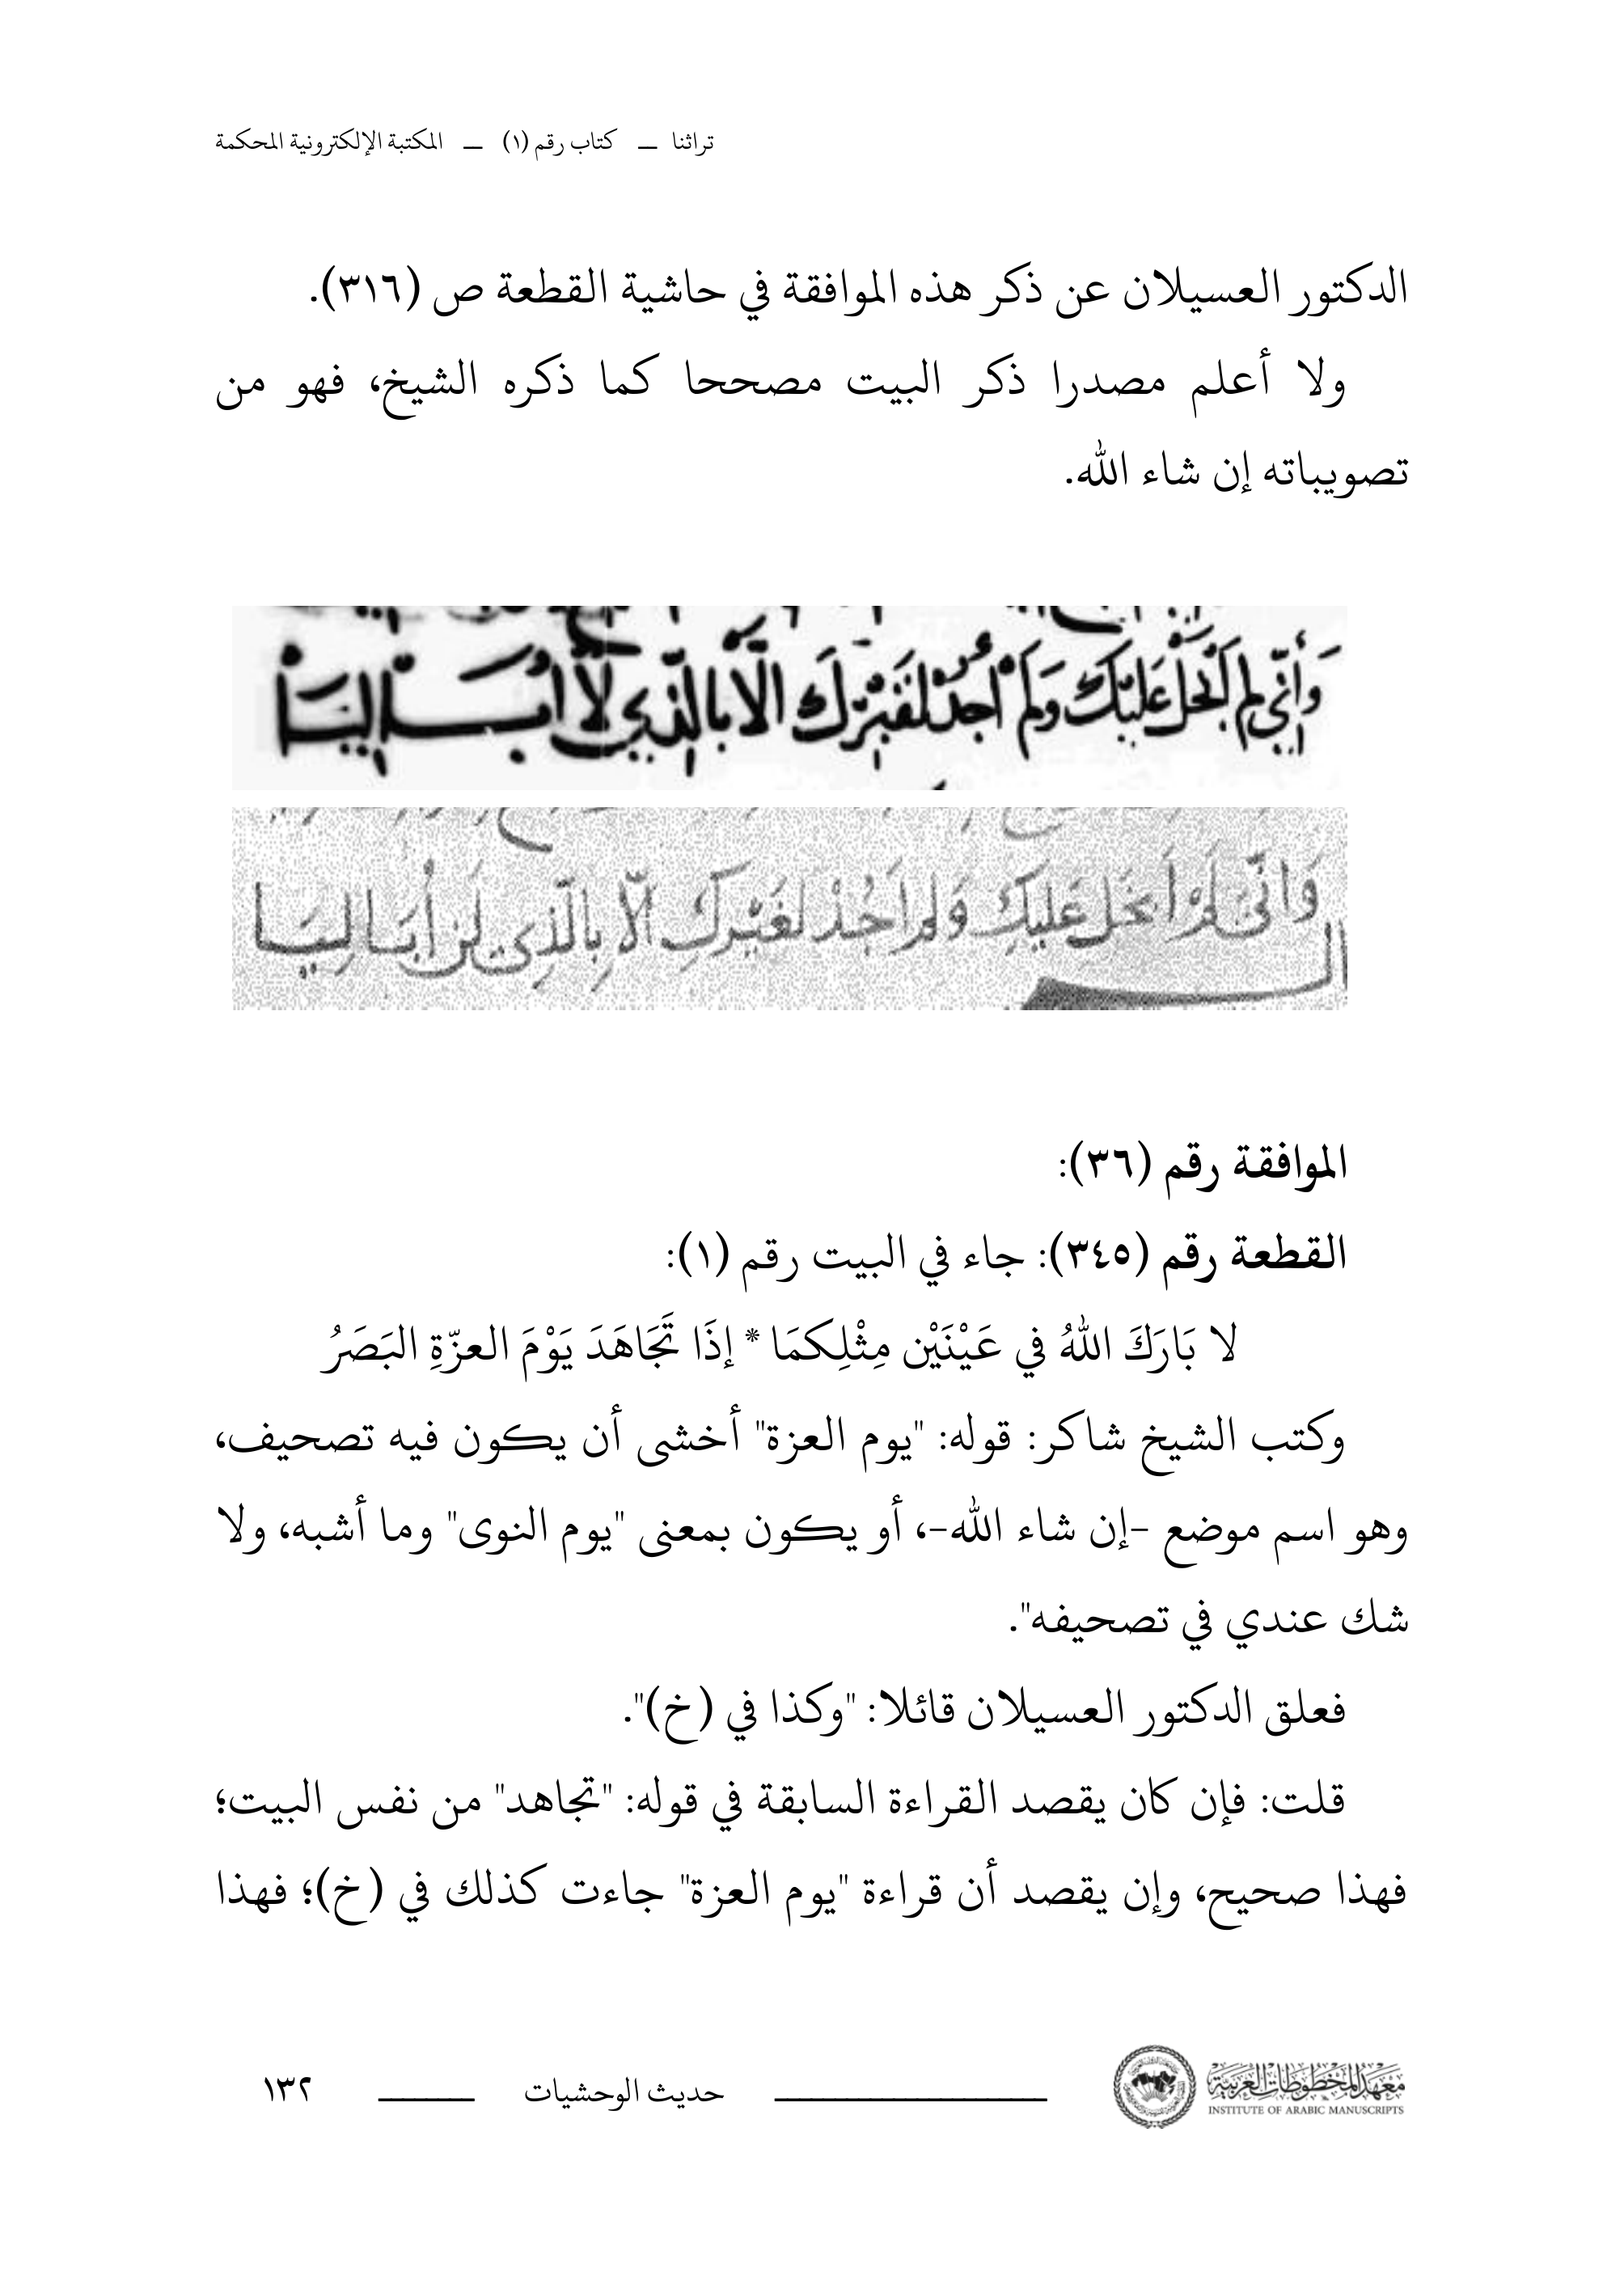 تراثنا — كتاب رقم (١) — المكتبة الإلكترونية المحكمة
الدكتور العسيلان عن ذكر هذه الموافقة في حاشية القطعة ص (٣١٦).
ولا أعلم مصدرا ذكر البيت مصححا كما ذكره الشيخ، فهو من
تصويباته إن شاء الله.
وَأَنِّي لم أبخل عَليْك وَلَمْ أجِدْ لغَيْرك الّا بالذِي لا أبَـاليَا
وَانِّى لَمْ اَبخَل عَلَيكِ وَلم اَجُدْ لغَيْرِكِ الّا بِالَّذِى لَن أُبَاليَا
الموافقة رقم (٣٦):
القطعة رقم (٣٤٥): جاء في البيت رقم (١):
لا بَارَكَ اللهُ في عَيْنَيْن مِثْلِكمَا * إذَا تَجَاهَدَ يَوْمَ العزّةِ البَصَرُ
وكتب الشيخ شاكر: قوله: "يوم العزة" أخشى أن يكون فيه تصحيف،
وهو اسم موضع -إن شاء الله-، أو يكون بمعنى "يوم النوى" وما أشبه، ولا
شك عندي في تصحيفه".
فعلق الدكتور العسيلان قائلا: "وكذا في (خ)".
قلت: فإن كان يقصد القراءة السابقة في قوله: "تجاهد" من نفس البيت؛
فهذا صحيح، وإن يقصد أن قراءة "يوم العزة" جاءت كذلك في (خ)؛ فهذا
معهد المخطوطات العربية
INSTITUTE OF ARABIC MANUSCRIPTS
حديث الوحشيات
١٣٢